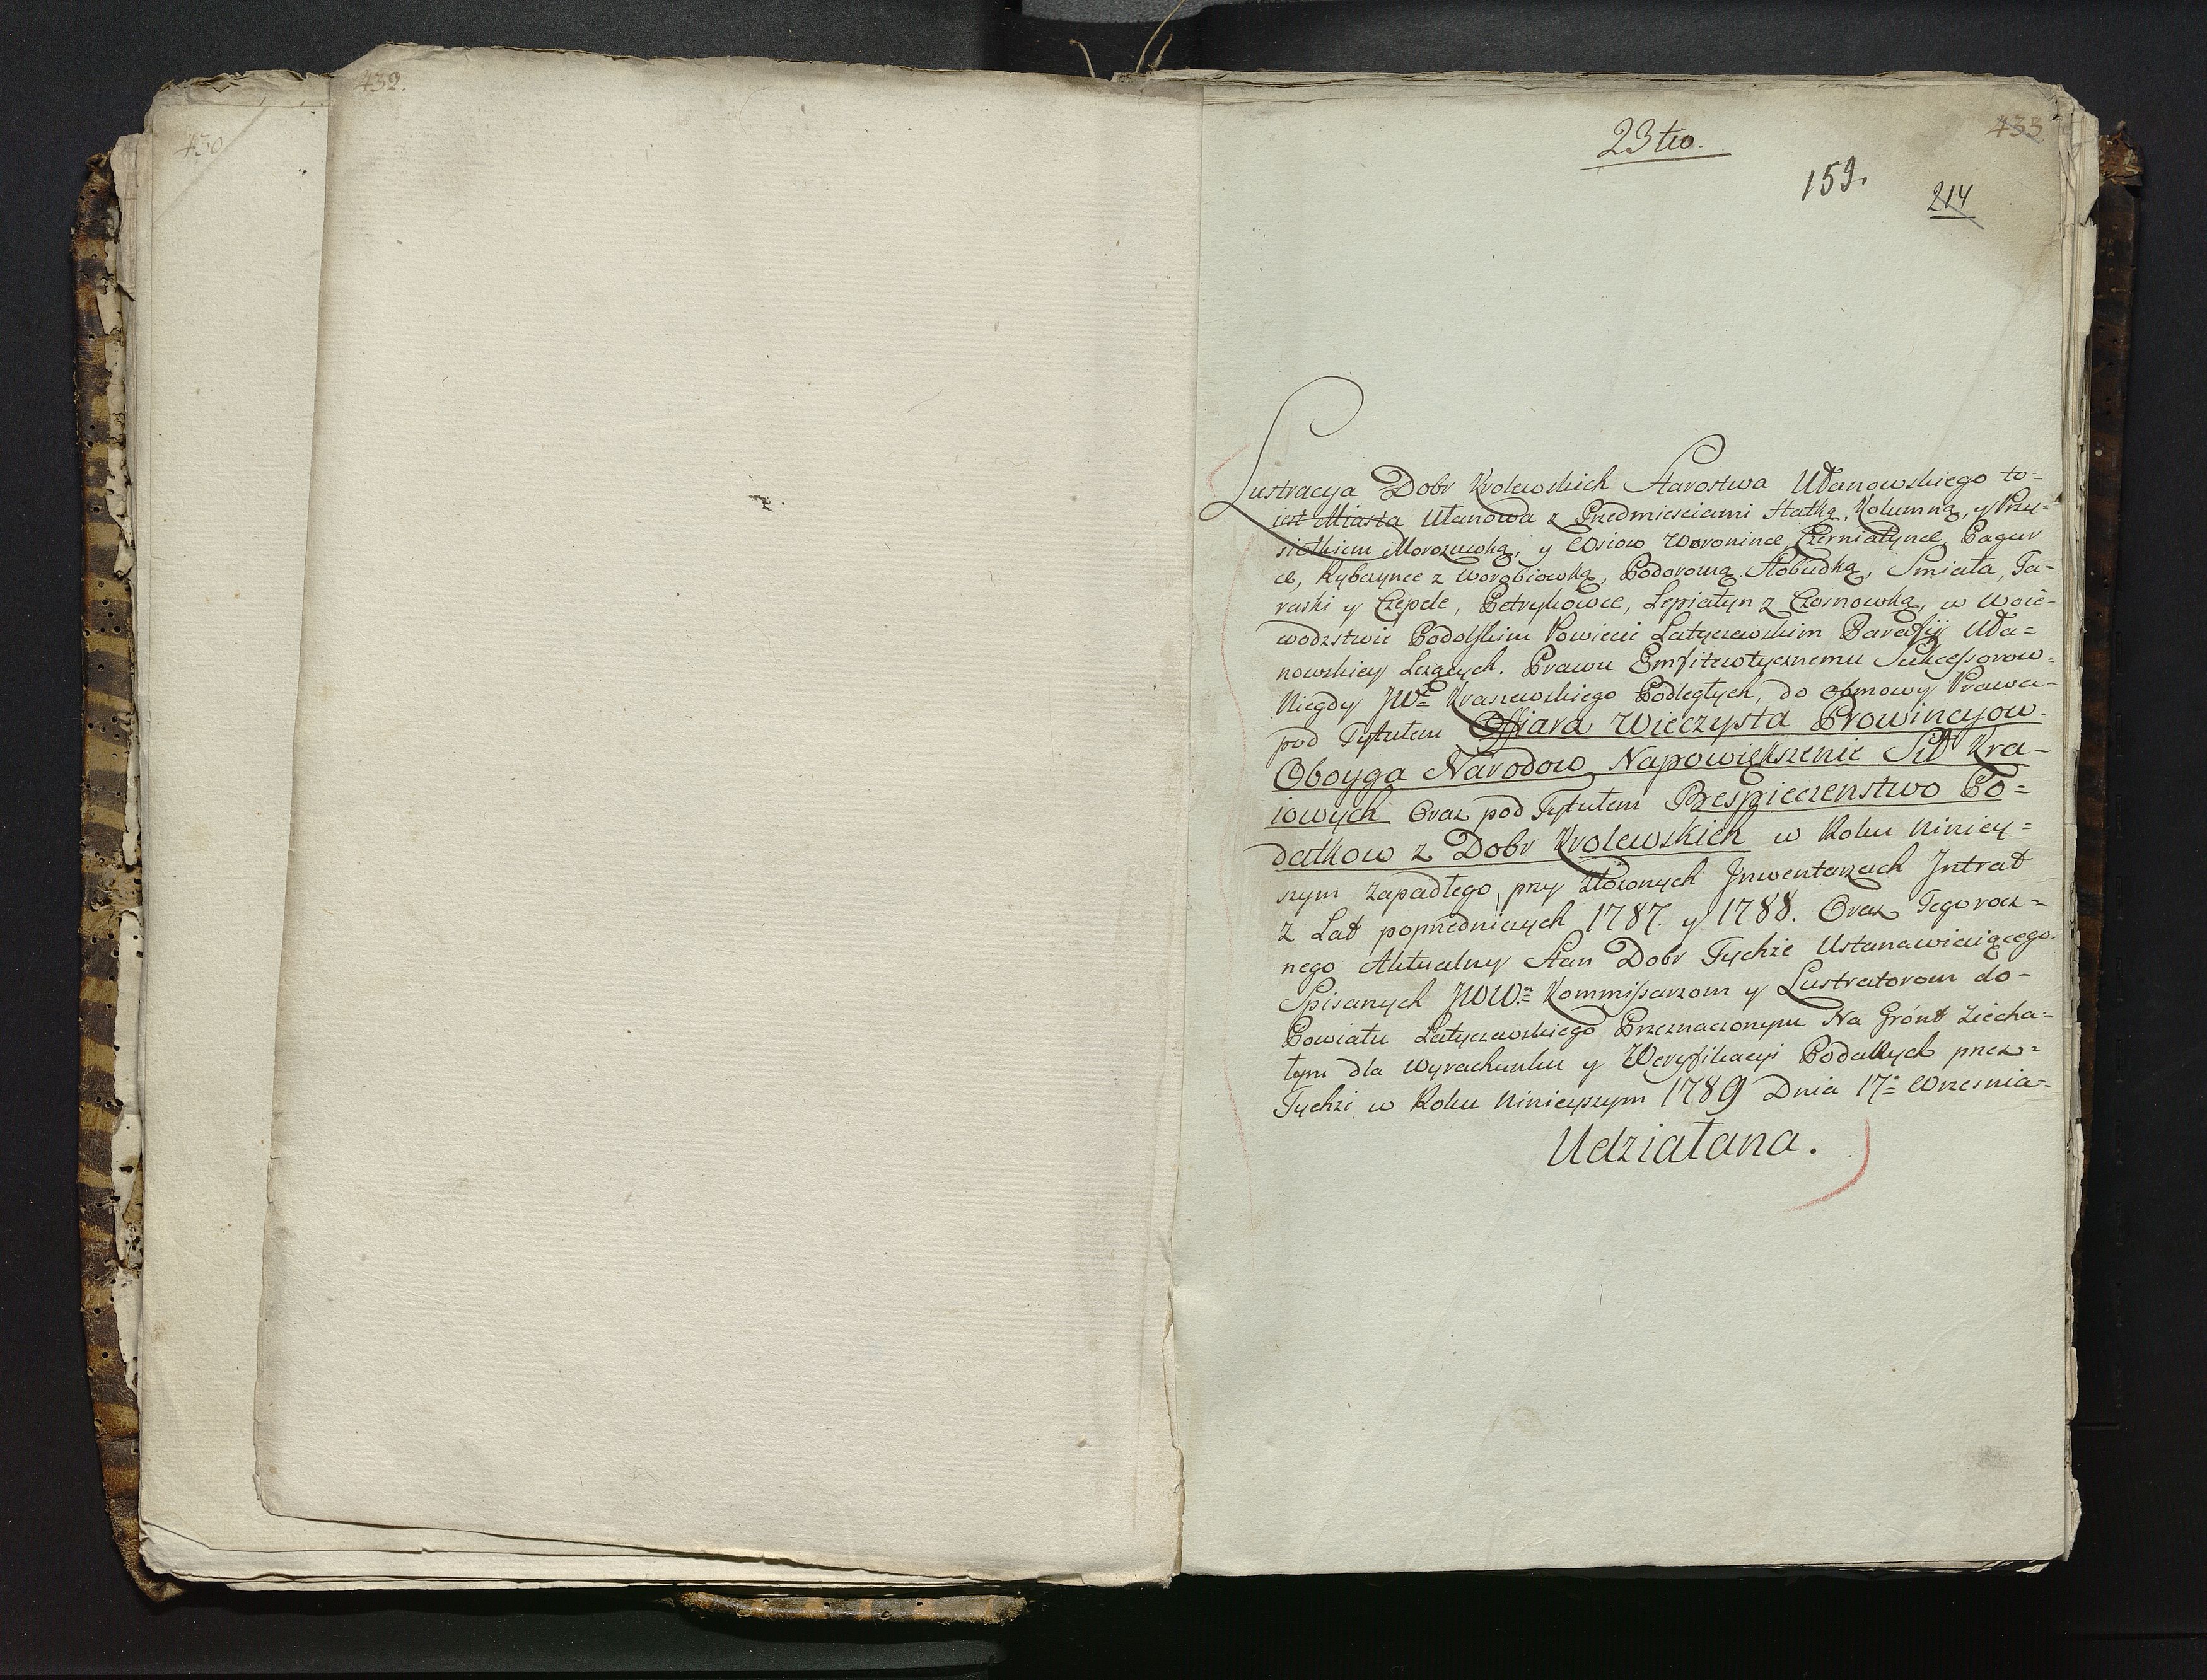 430
432.
433
23tio.
159.
214
Lustracya Dobr Krolewskich Starostwa Ułanowskiego to=
iest Miasta Ułanowa z Przedmiesciami Hatką, Kolumną, y Przy=
siołkiem Morozowką, y Wsiow Woronince, Czerniatynce, Pagur
ce, Rybczynce z Worobiowką, Podorozną Słobudką, Smiała, Ta=
raski y Czepele, Petrykowce, Lepiatyn z Czosnowką, w Woie=
wodzstwie Podolskim Powiecie Latyczewskim Parafij Uła=
nowskiey Leżących. Prawu Emfitewtycznemu Sukcessorow=
Niegdy JWo Kraszewskiego Podległych, do obmowy Prawa=
pod Tytułem Offiara Wieczysta Prowincyow
Oboyga Narodow Napowiększenie Sił Kra=
iowych Oraz pod Tytułem Bespieczenstwo Po=
datkow z Dobr Krolewskich w Roku Niniey=
szym zapadłego, przy Złożonych Jnwentarzach Jntrat
z Lat poprzedniczych 1787. y 1788. Oraz Tegorocz=
nego Aktualny Stan Dobr Tychże Ustanawiaiącego
Spisanych JWWn Kommissarzom y Lustratorom do=
Powiatu Latyczewskiego Przeznaczonym Na Gront Ziecha=
łym dla Wyrachunku y Weryfikacyi Podanych przez=
Tychże w Roku Ninieyszym 1789 Dnia 17o Wrzesnia=
Udziałana.